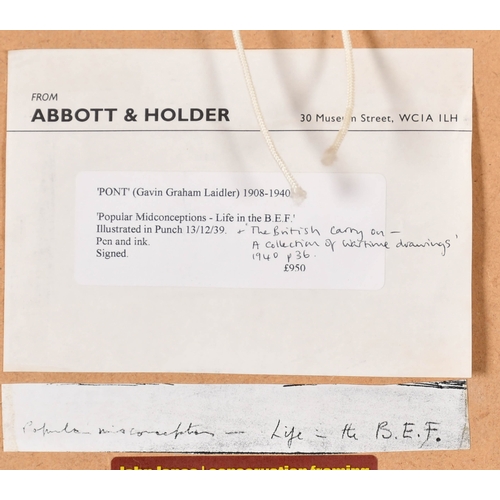 FROM
ABBOTT & HOLDER
30 Museum Street, WC1A 1LH
'PONT' (Gavin Graham Laidler) 1908-1940
'Popular Midconceptions - Life in the B.E.F.'
Illustrated in Punch 13/12/39. + 'The British Carry on -
Pen and ink. A collection of wartime drawings'
Signed. 1940 p36.
£950
Popular misconceptions — Life in the B.E.F.
John Jones | conservation framing